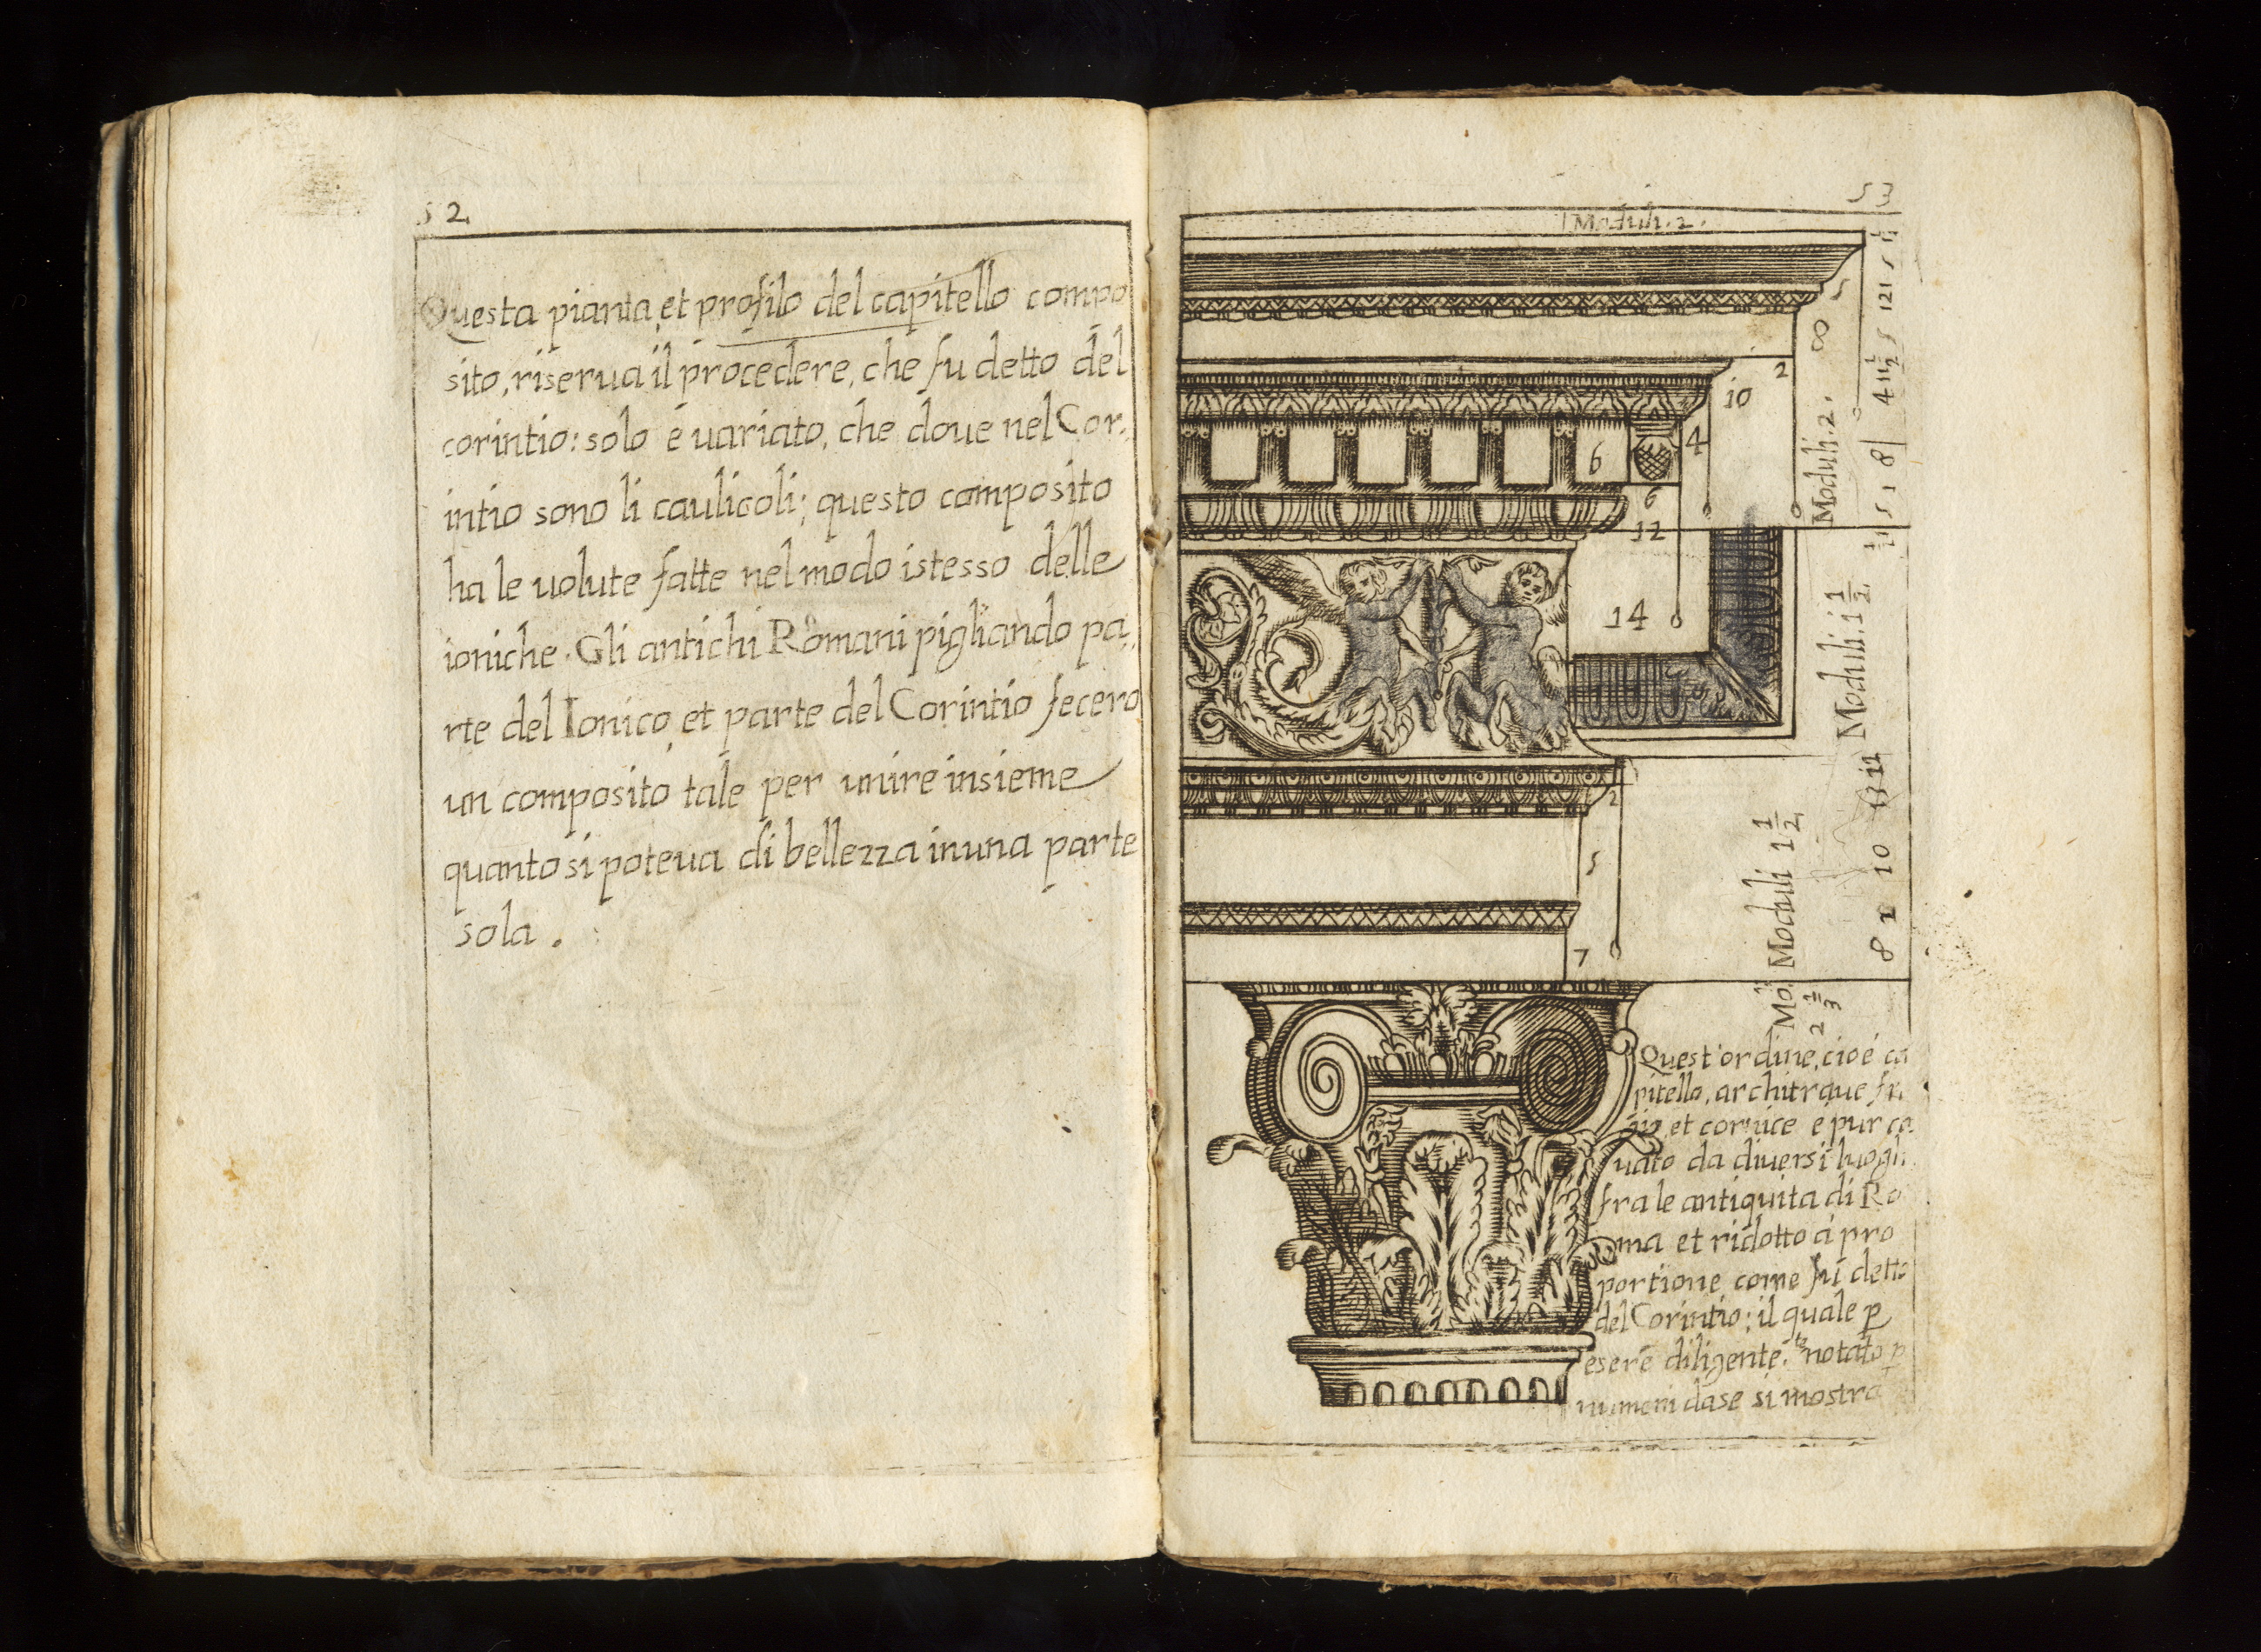 52.
Questa pianta, et profilo del capitello compo
sito, riserua il procedere, che fu detto del
corintio: solo é uariato, che doue nel Cor,,
intio sono li caulicoli; questo composito
ha le uolute fatte nel modo istesso delle
ioniche. Gli antichi Romani pigliando pa,,
rte del Ionico, et parte del Corintio fecero
un composito tale per unire insieme
quanto si poteua di bellezza in una parte
sola.
53
Moduli. 2.
5
8
2
10
4
6
6
12
14
Moduli. 2.
5
121
5
4 11 1/2
8
1
5
Moduli. 1 1/2.
2
5
7
Moduli 1 1/2
11
10
2
8
Mo.
2 1/3
Quest'ordine, cioé ca
pitello, architraue fr
gio, et cornice e pur ca
uato da diuersi luogh
fra le antiquita di Ro
ma et ridotto á pro
portione come fu detto
del Corintio; il quale p
esere diligente.te notato p
numeri da se si mostra